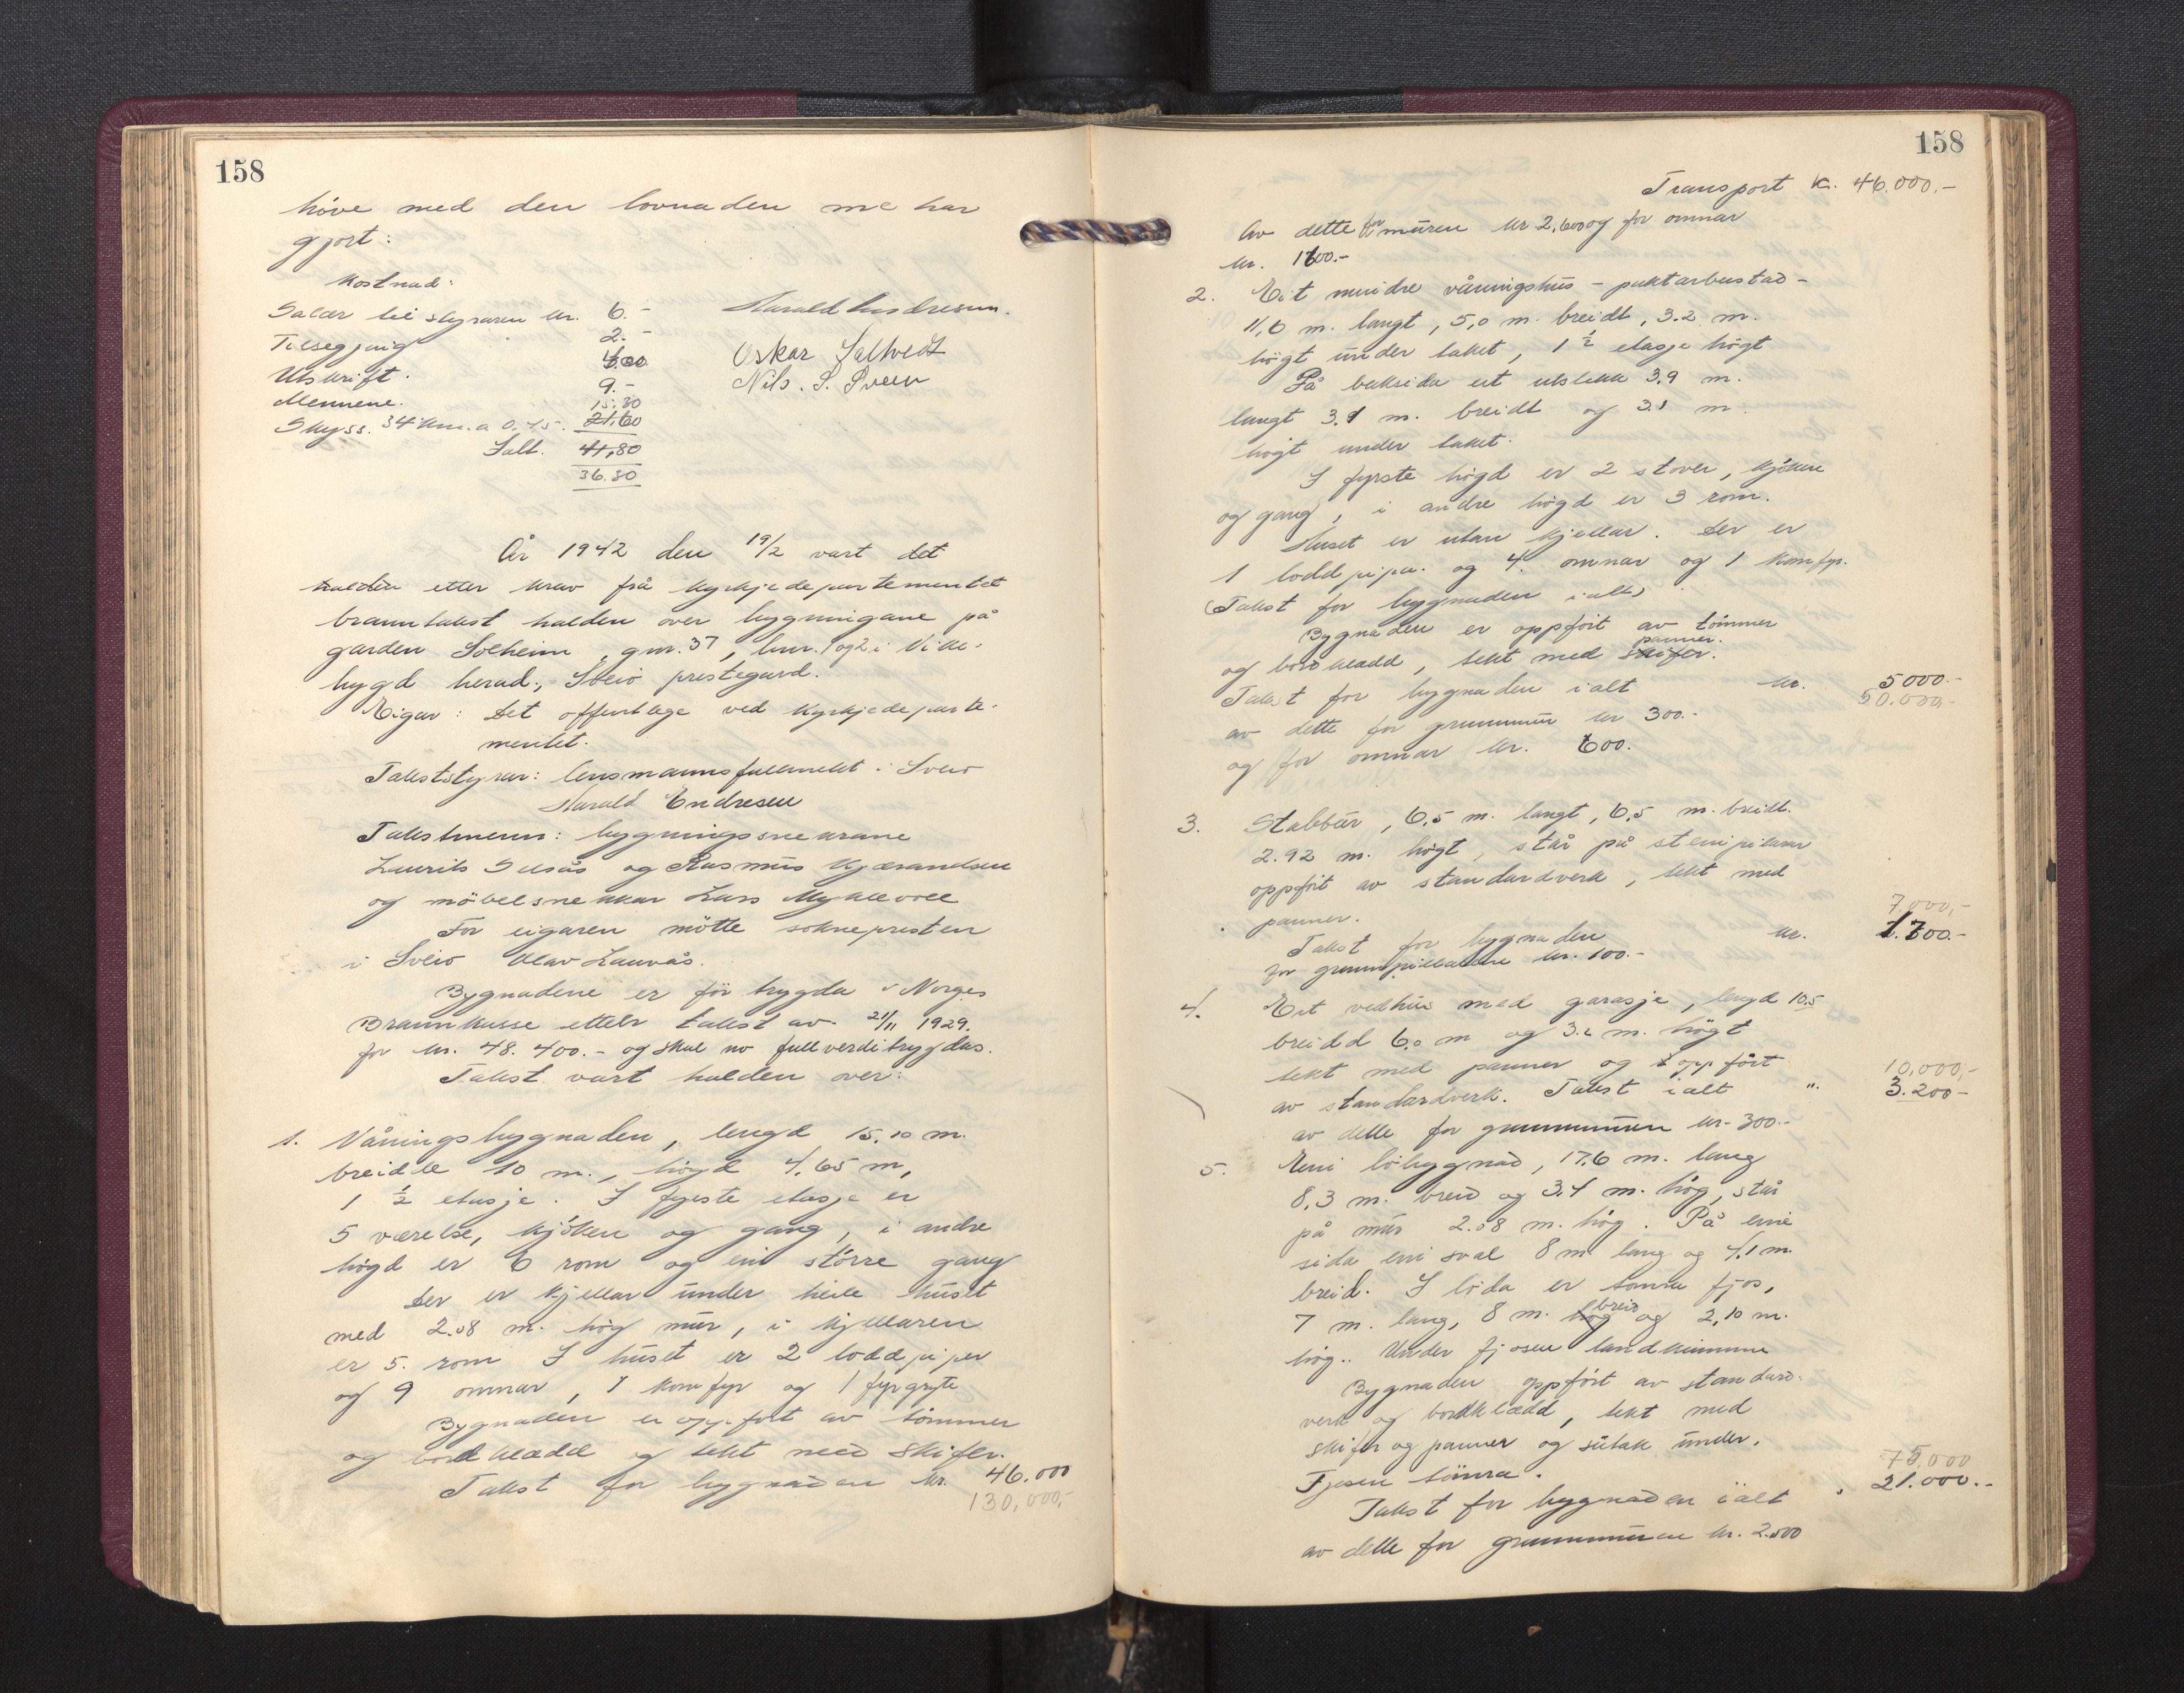 158
höve med den lovnaden me har
gjort:
Kostnad:
Salær til styraren kr. 6.-
Tilsegjing 2.-
Utskrift. 4.00
Mennene. 9.-
15.30
Skyss. 34 km. a 0.45. 21,60
Ialt. 41,80
36.30
Harald Endresen.
Oskar Saltvedt
Nils. S. Sveen
År 1942 den 19/2 vart det
halden etter krav frå kyrkjedepartementet
branntakst halden over bygningane på
garden Solheim, gnr. 37, bnr. 1 og 2 i Vike-
bygd herad, Sveio prestegard.
Eigar: Det offentlege ved Kyrkjedeparte-
mentet.
Takststyrar: lensmannsfullmekt. i Sveio
Harald Endresen
Takstmenn: bygningssnekrane
Laurits Selsås og Rasmus Kjærandsen
og möbelsnekkar Lars Myklevoll
For eigaren mötte soknepresten
i Sveio Olav Lauvås.
Bygnadene er för trygda i Norges
Brannkasse etter takst av 21/11 1929.
for kr. 48.400.- og skal no fullverditrygdas.
Takst vart halden over:
1. Våningsbygnaden, lengd 15.10 m.
breidde 10 m., högd 4,65 m,
1 ½ etasje. I fyrste etasje er
5 værelse, kjöken og gang, i andre
högd er 6 rom og ein större gang
Der er kjellar under heile huset
med 2.08 m. hög mur, i kjellaren
er 5. rom I huset er 2 loddpiper
og 9 omnar, 1 komfyr og 1 fyrgryte
Bygnaden er oppfört av tömmer
og bordklædd og tekt med skifer.
Takst for bygnaden kr. 46.000
130,000,-
158
Transport kr. 46.000.-
Av dette for muren kr 2,600 og for omnar
kr. 1600.-
2. Eit mindre våningshus - paktarbustad -
11,6 m. langt, 5,0 m. breidt, 3.2 m.
högt under taket, 1 ½ etasje högt
På baksida eit utstikk 3.9 m.
langt 3.1 m. breidt og 3.1 m.
högt under taket.
I fyrste högd er 2 stover, kjöken
og gang, i andre högd er 3 rom.
Huset er utan kjellar. Der er
1 loddpipe. og 4. omnar og 1 komfyr.
(Takst for bygnaden ialt)
Bygnaden er oppfört av tömmer
og bordklædd, tekt med skifer. panner.
Takst for bygnaden ialt kr. 5000.-
50.000,-
av dette for grunnmur kr 300.-
og for omnar kr. 600.
3. Stabbur, 6.5 m. langt, 6.5 m. breidt.
2.92 m. högt, står på steinpilarar
oppfört av standardverk, tekt med
panner.
7,000,-
Takst for bygnaden kr. 1.700.-
for grunnpillarane kr. 100.-
4. Eit vedhus med garasje, lengd 10.5
breidd 6.0 m og 3.2 m. högt
tekt med panner og oppfört
10,000,-
av standardverk. Takst ialt " 3.200-
av dette for grunnmuren kr. 300.-
5. Ein löbygnad, 17.6 m. lang
8,3 m. breid og 3.4 m. hög, står
på mur 2.08 m. hög. På eine
sida ein sval 8 m lang og 4.1 m.
breid. I löda er tömra fjos,
7 m. lang, 8 m. hög breid og 2,10 m.
hög. Under fjosen landkjumme
Bygnaden oppfört av standard-
verk og bordklædd, tekt med
skifer og panner og sutak under.
Fjosen tömra.
75,000
Takst for bygnaden ialt " 21.000.-
av dette for grunnmuren kr. 2.500